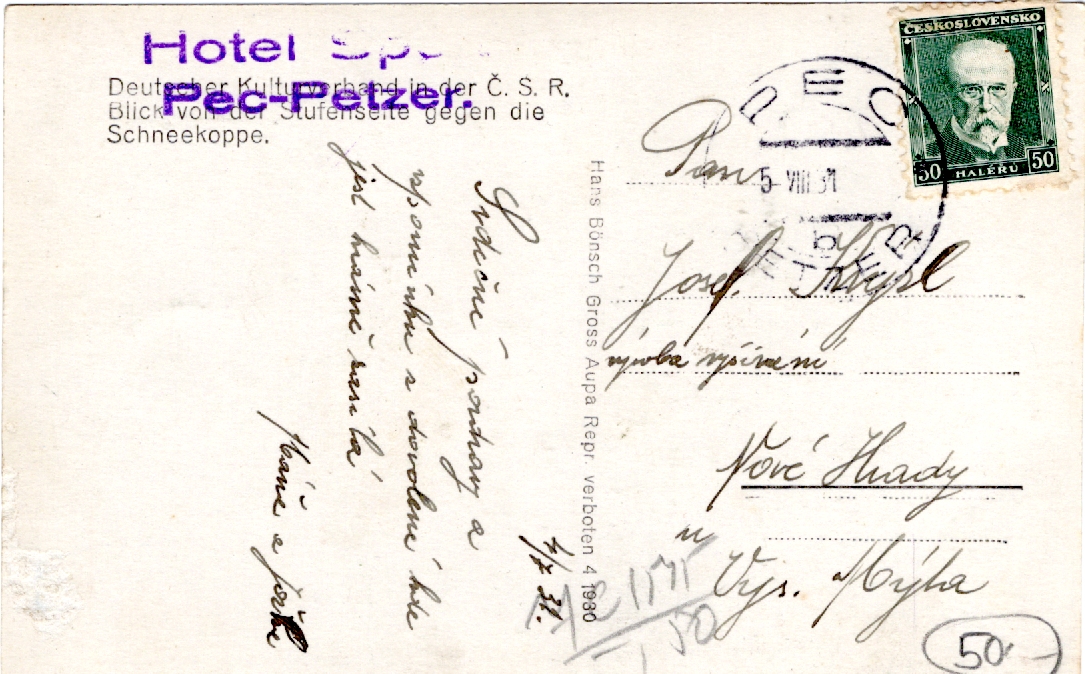 Hotel
Pec-Petzer.
Deutscher Kulturverband in der Č. S. R.
Blick von der Stufenseite gegen die
Schneekoppe.
ČESKOSLOVENSKO
50 HALÉRŮ 50
PEC
5 VIII 31
PETZER
Pan
Josef
výroba vyšívání
Nové Hrady
u
Vys. Mýta
Hans Bönsch Gross Aupa Repr. verboten 4 1930
31.
Srdečné pozdravy a
vzpomínku z dovolené kde
jest krásně zasílá
Máňa a
50
50